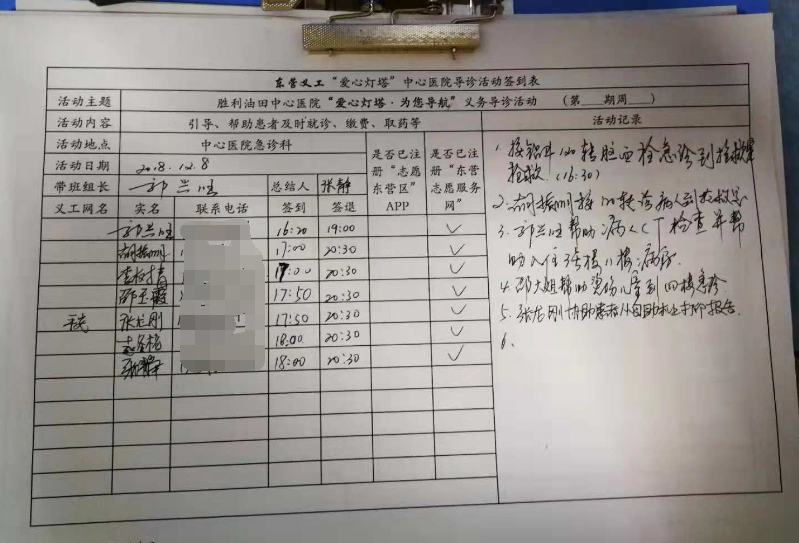 东营义工“爱心灯塔”中心医院导诊活动签到表
活动主题 胜利油田中心医院“爱心灯塔·为您导航”义务导诊活动 （第 期周 ）
活动内容 引导、帮助患者及时就诊、缴费、取药等 活动记录
活动地点 中心医院急诊科
活动日期 2018.12.8
是否已注册“志愿东营区”APP
是否已注册“东营志愿服务网”
带班组长 总结人 张静
义工网名 实名 联系电话 签到 签退
16:20 19:00 ✓
17:00 20:30 ✓
17:00 20:30 ✓
17:50 20:30 ✓
张龙刚 17:30 20:30 ✓
18:00 20:30 ✓
张静 18:00 20:30 ✓
1. 转脑西检急诊到抢救室
抢救（16:30）
2. 接120转诊病人到抢救室
3. 帮助病人CT检查并帮
助入住 楼11楼病房
4. 邵大姐帮助 婴幼儿到四楼急诊
5. 张龙刚协助 自助机上打印报告
6.